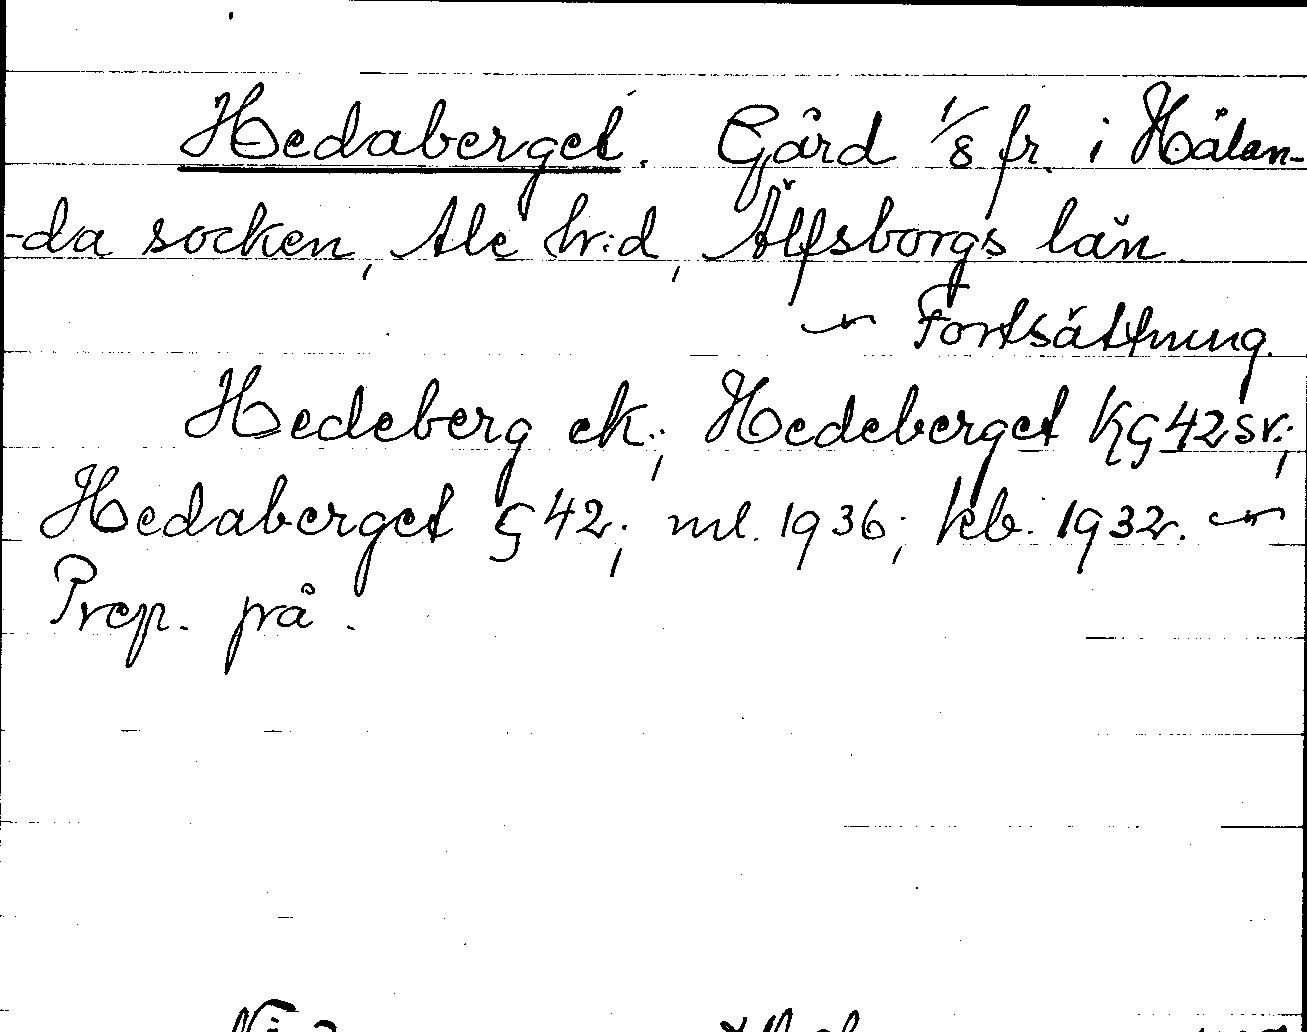 Hedaberget. Gård 1/8 fr. i Hålan-
-da socken, Ale h:d, Älfsborgs län.
Fortsättning.
Hedeberg ek.; Hedeberget KG 42 sv.;
Hedaberget G 42; ml. 1936; kb. 1932.
Prep. på.